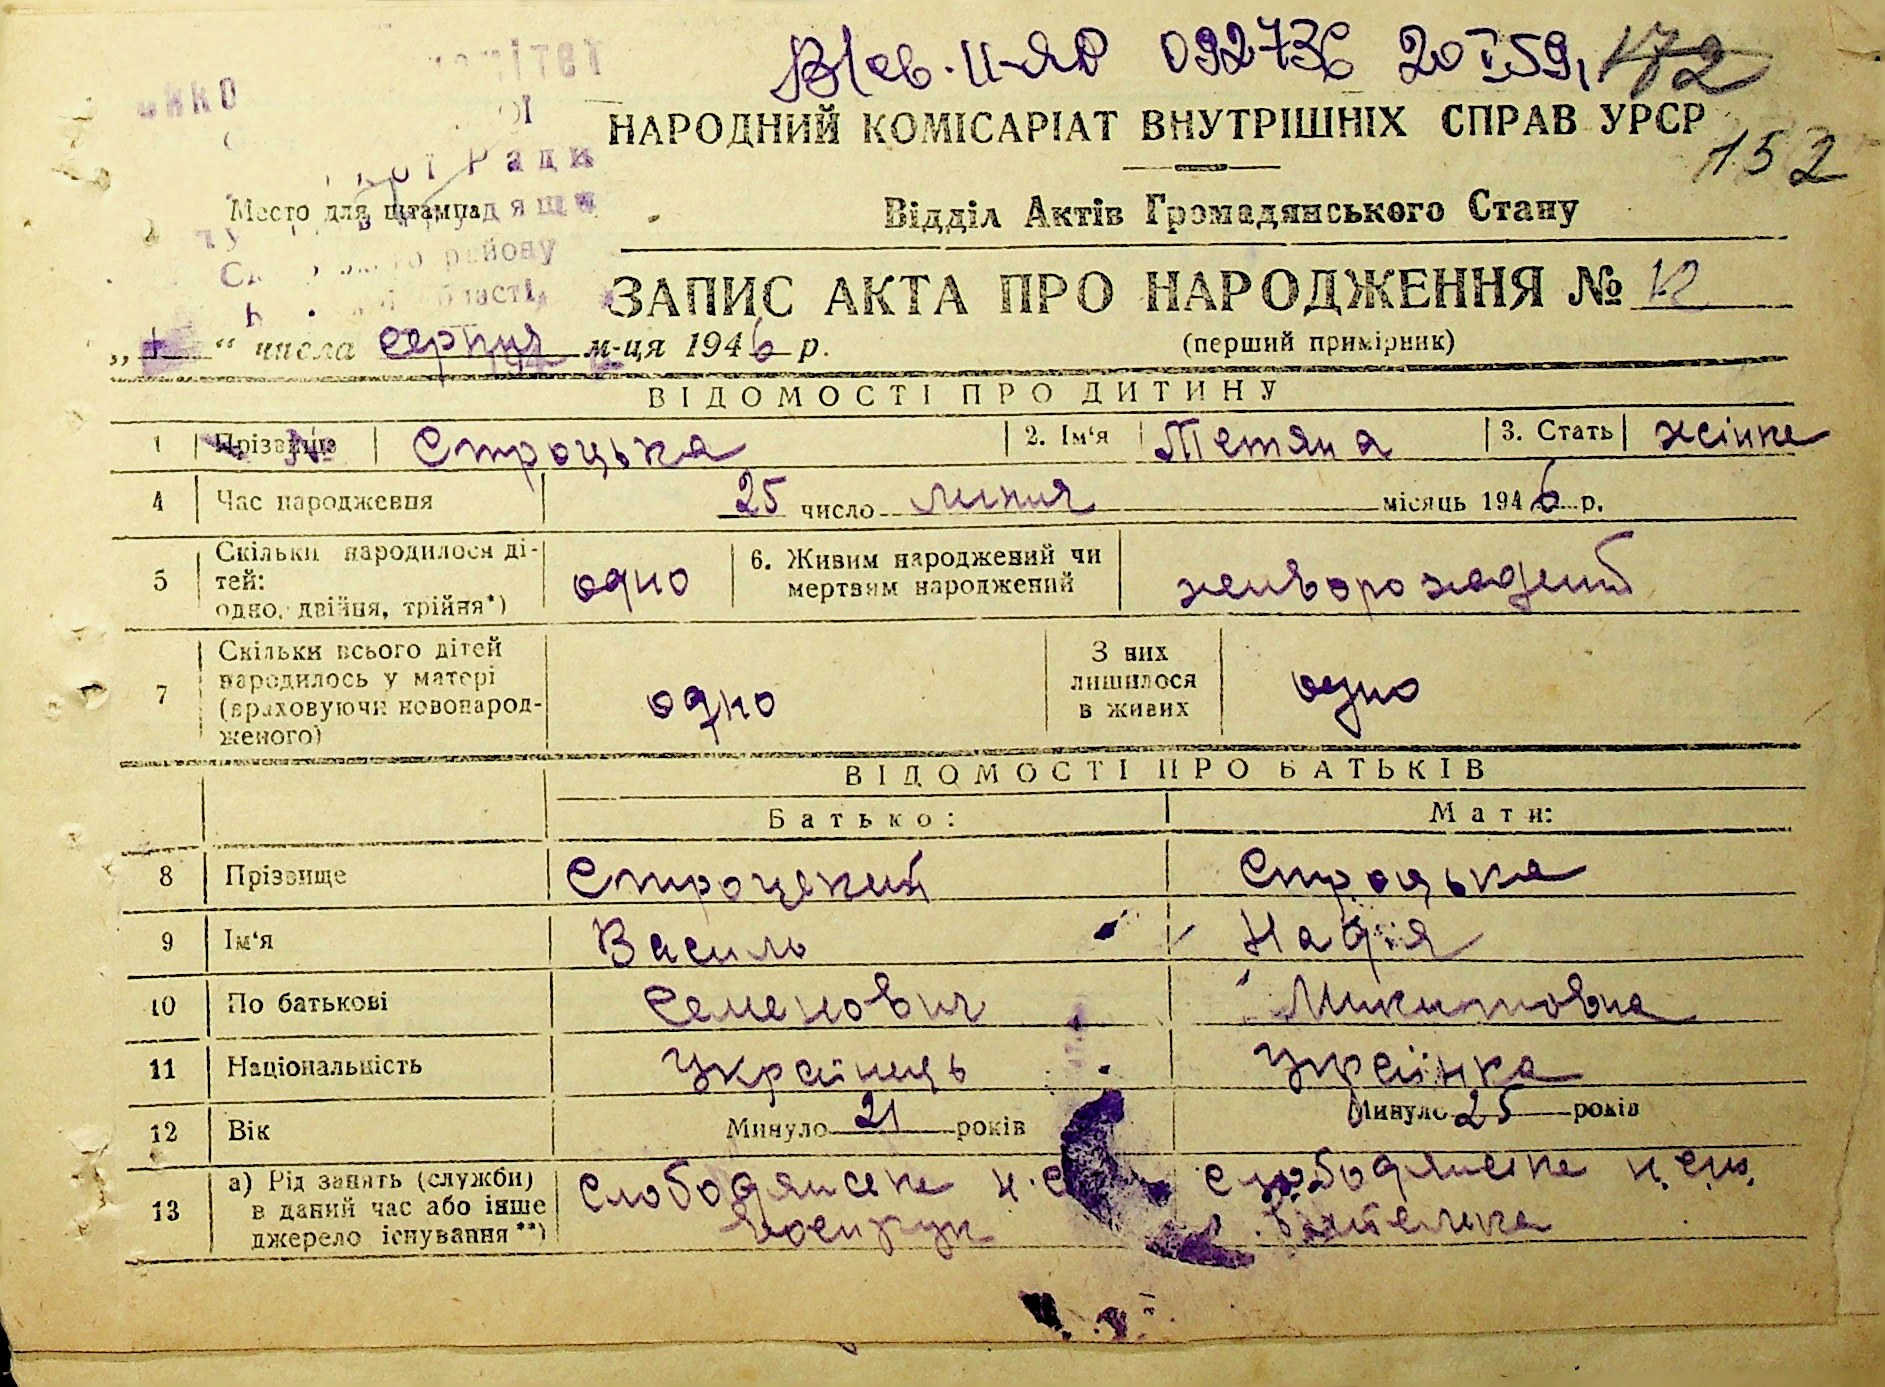 092736 20 I 59, 172
НАРОДНИЙ КОМІСАРІАТ ВНУТРІШНІХ СПРАВ УРСР
152
Ради
Место для штампа
Відділ Актів Громадянського Стану
району
області
ЗАПИС АКТА ПРО НАРОДЖЕННЯ № 12
„ “ числа серпня м-ця 1946 р.
(перший примірник)
ВІДОМОСТІ ПРО ДИТИНУ
1 Прізвище Строцька 2. Ім‘я Тетяна 3. Стать жіноче
4 Час народження 25 число липня місяць 1946 р.
5 Скільки народилося ді-
тей:
одно, двійня, трійня*) одно
6. Живим народжений чи
мертвим народжений
7 Скільки всього дітей
народилось у матері
(враховуючи новонарод-
женого) одно
З них
лишилося
в живих одно
ВІДОМОСТІ ПРО БАТЬКІВ
Батько: Мати:
8 Прізвище Строцький Строцька
9 Ім‘я Василь Надія
10 По батькові Семенович Микитовна
11 Національність Українець Українка
12 Вік Минуло 21 років Минуло 25 років
13 а) Рід занять (служби)
в даний час або інше
джерело існування**)
Слободянська н.с Слободянська н.с.ш.
воєнрук вчителька